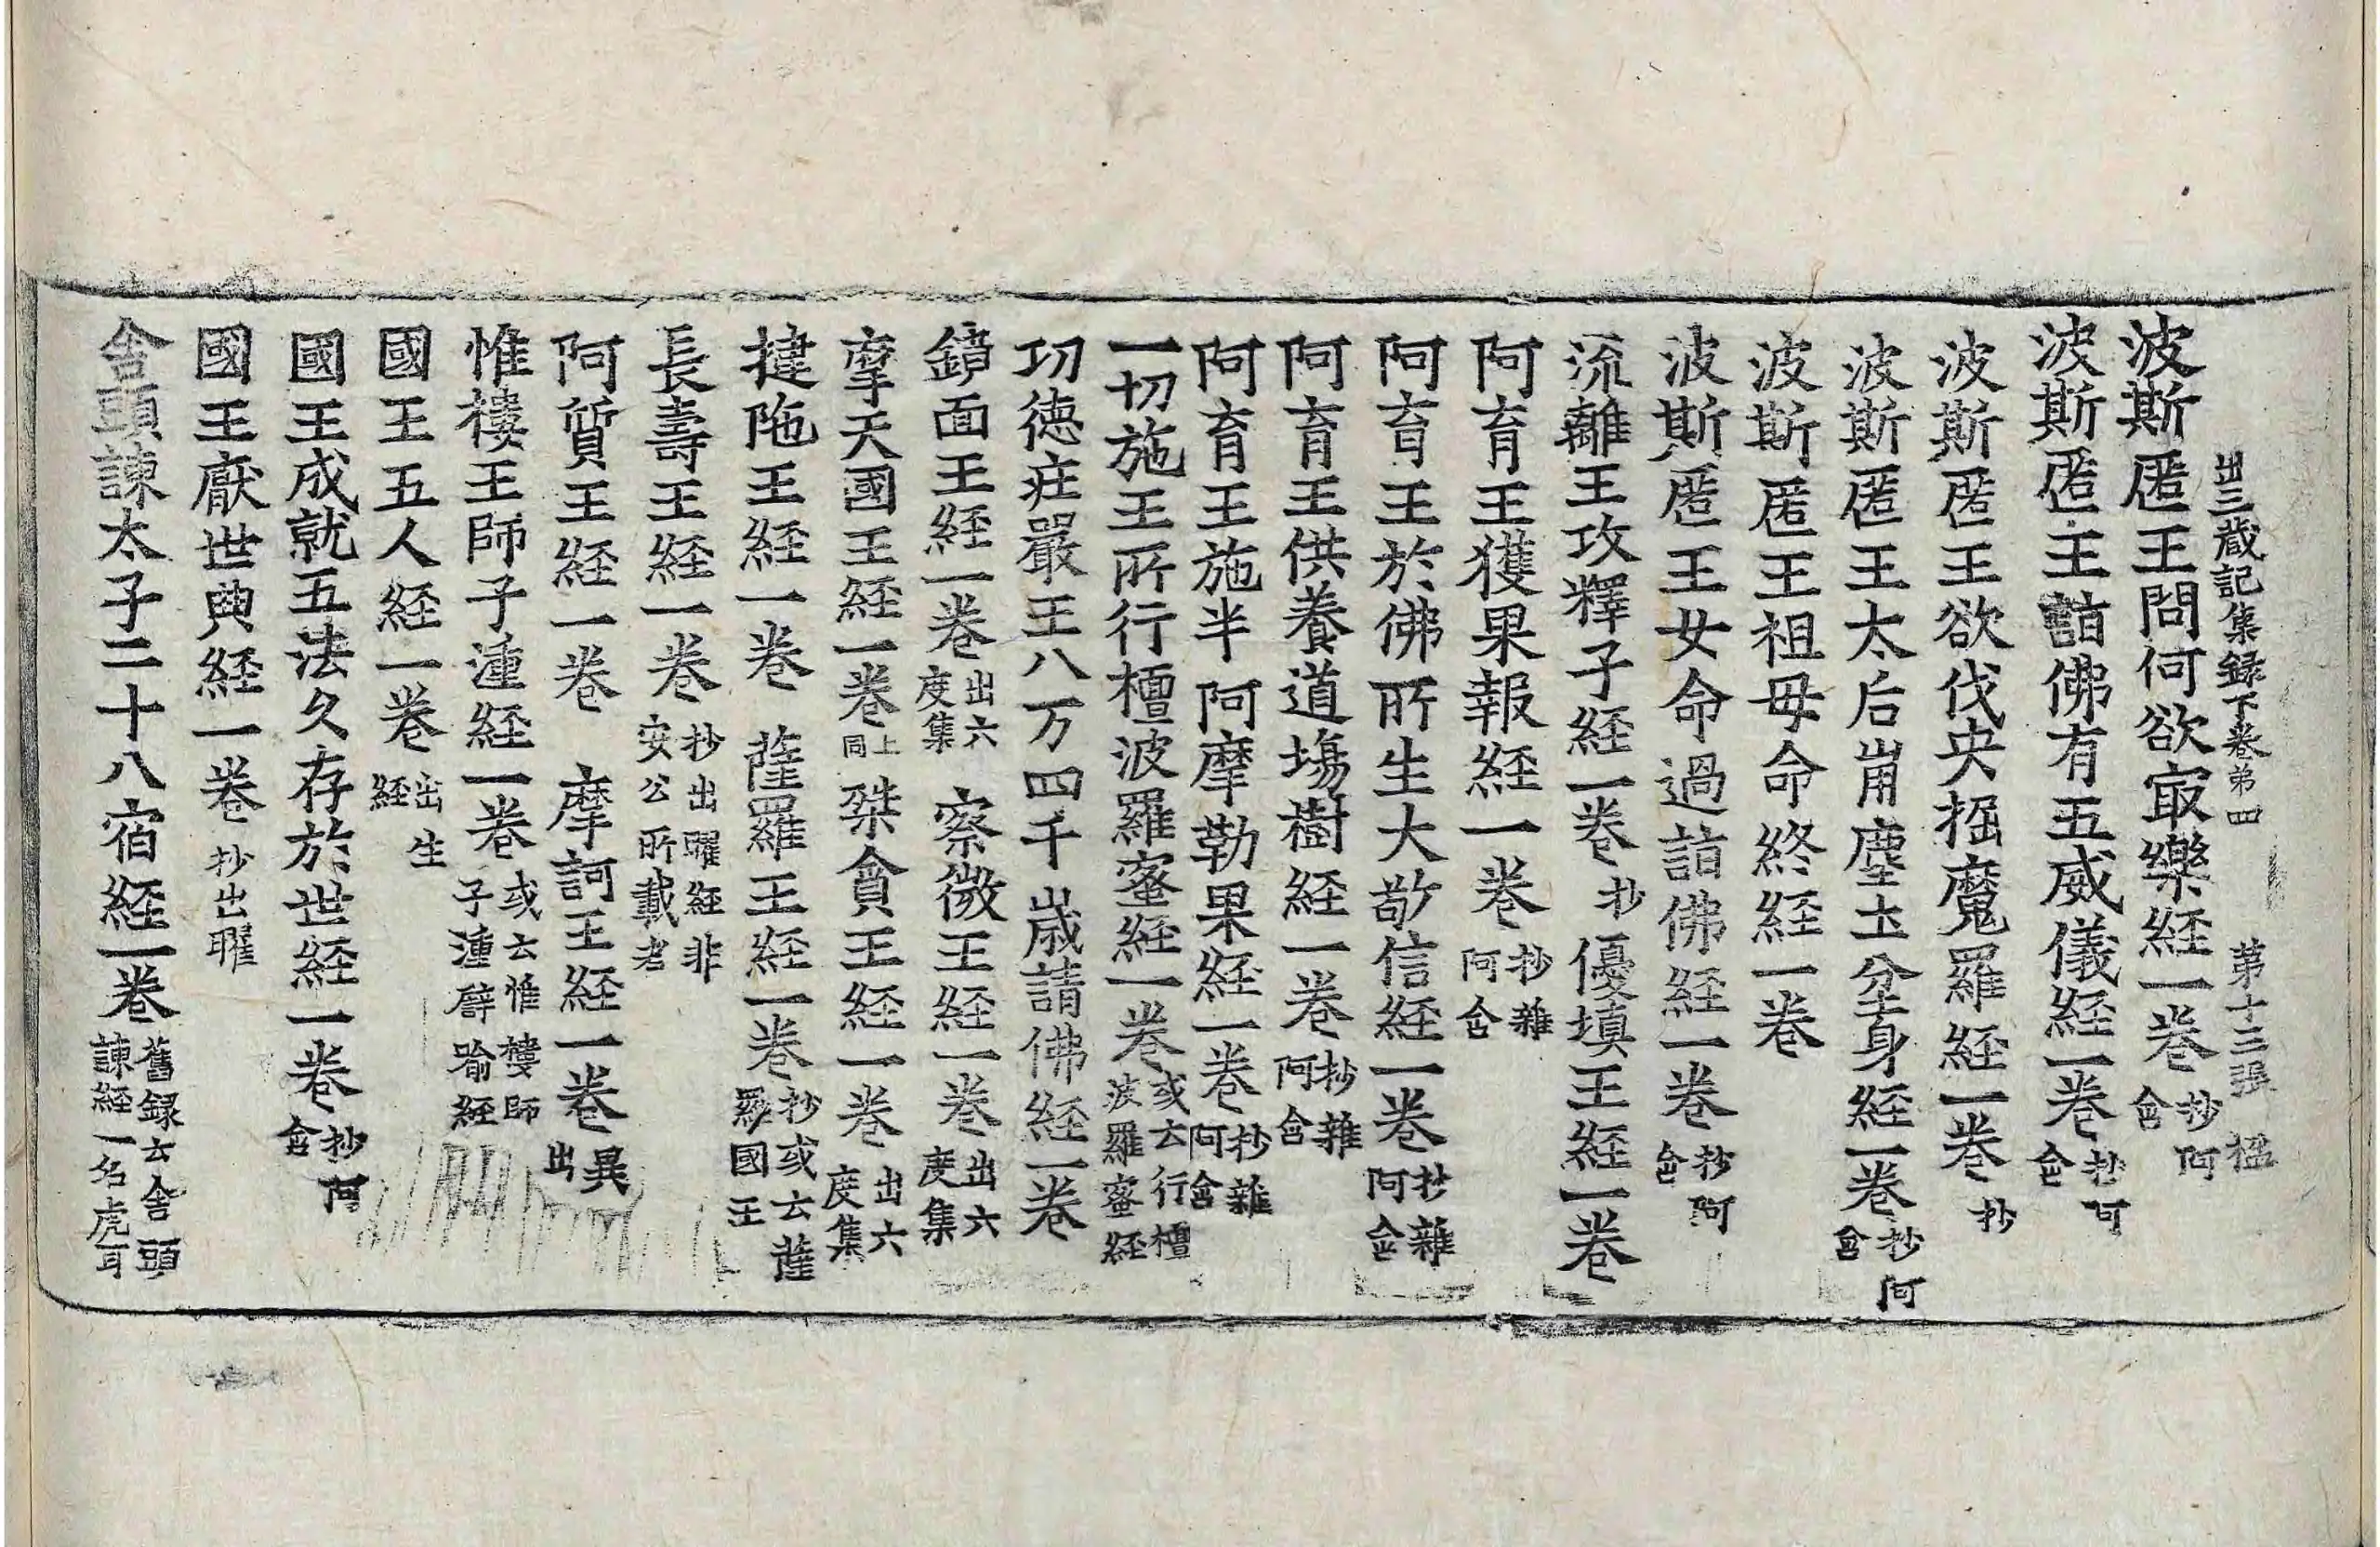 出三蔵記集録下卷第四 第十三張 楹
波斯匿王問何欲㝡樂経一卷 抄阿含
波斯匿王詣佛有五威儀経一卷 抄阿含
波斯匿王欲伐央掘魔羅経一卷 抄
波斯匿王太后崩塵土坌身経一卷 抄阿含
波斯匿王祖母命終経一卷
波斯匿王女命過詣佛経一卷 抄阿含
流離王攻釋子経一卷 抄 優填王経一卷
阿育王獲果報経一卷 抄雜阿含
阿育王於佛所生大敬信経一卷 抄雜阿含
阿育王供養道塲樹経一卷 抄雜阿含
阿育王施半阿摩勒果経一卷 抄雜阿含
一切施王所行檀波羅蜜経一卷 或云行檀波羅蜜経
功德莊嚴王八万四千歳請佛経一卷
鏡面王経一卷 出六度集 察微王経一卷 出六度集
摩天國王経一卷 上同 桀貪王経一卷 出六度集
揵陁王経一卷 薩羅王経一卷 抄或云薩羅國王
長壽王経一卷 抄出曜経非安公所載者
阿質王経一卷 摩訶王経一卷 異出
惟樓王師子湩経一卷 或云惟樓師子湩譬喻経
國王五人経一卷 出生経
國王成就五法久存於世経一卷 抄阿含
國王厭世典経一卷 抄出曜
舍頭諫太子二十八宿経一卷 舊録云舍頭諫経一名虎耳